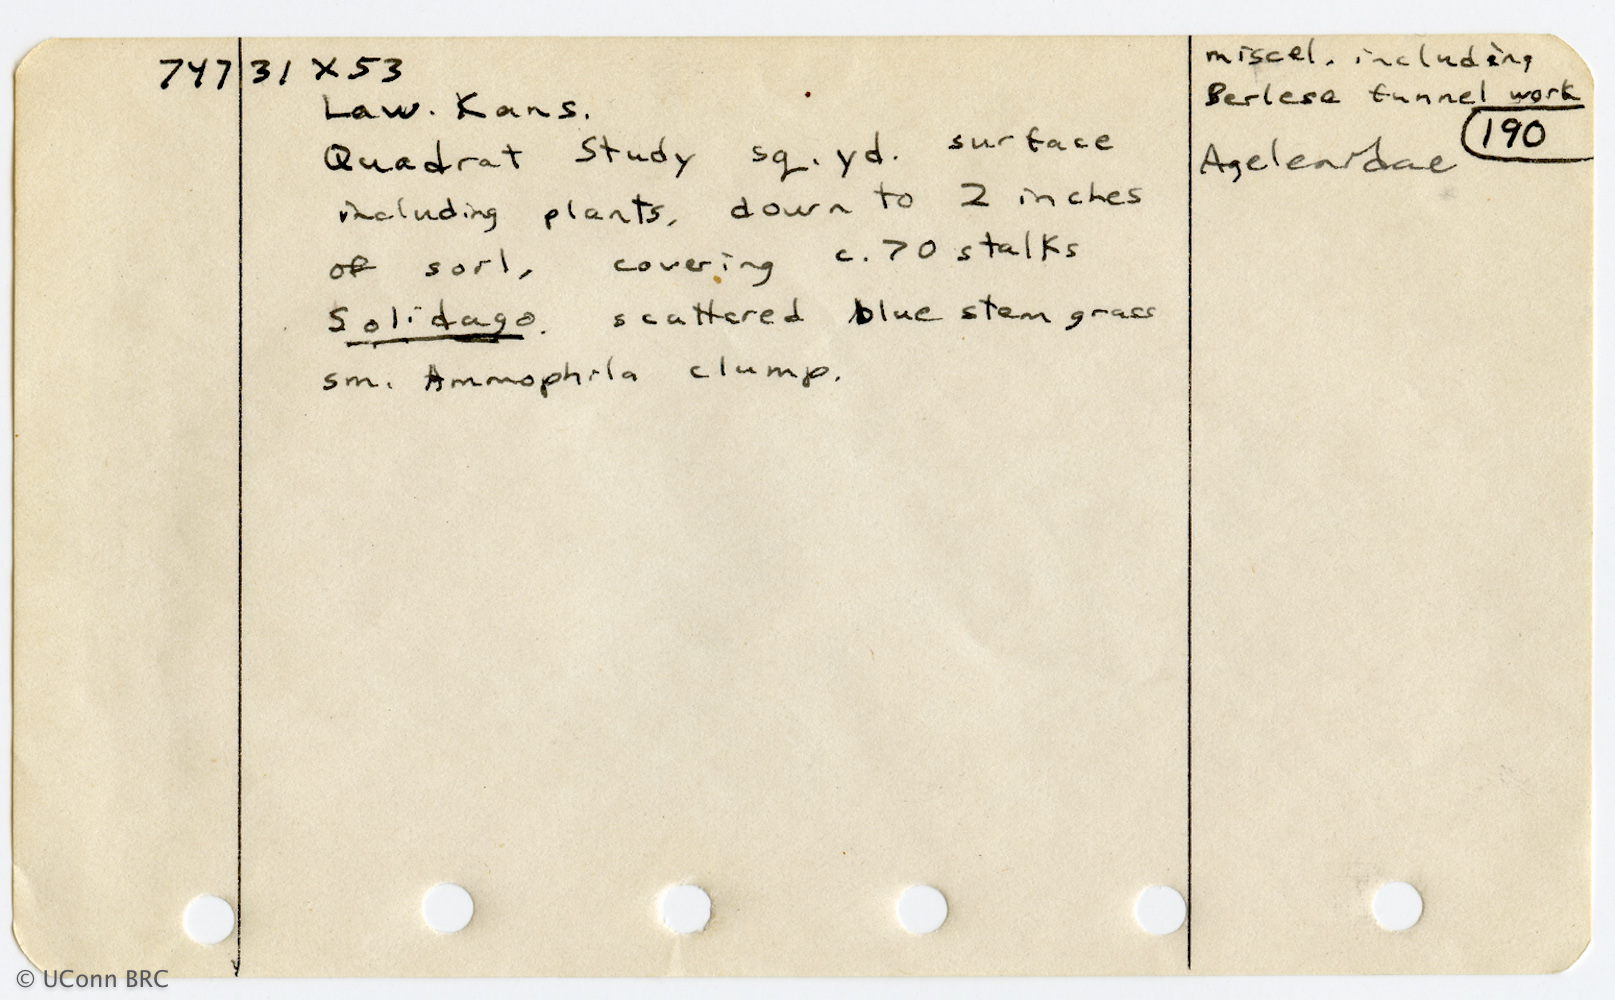 747 31 X 53
Law. Kans.
Quadrat Study sq. yd. surface
including plants, down to 2 inches
of soil, covering c. 70 stalks
Solidago. scattered blue stem grass
sm. Ammophila clump.
miscel. including
Berlese funnel work
190
Agelenidae
© UConn BRC